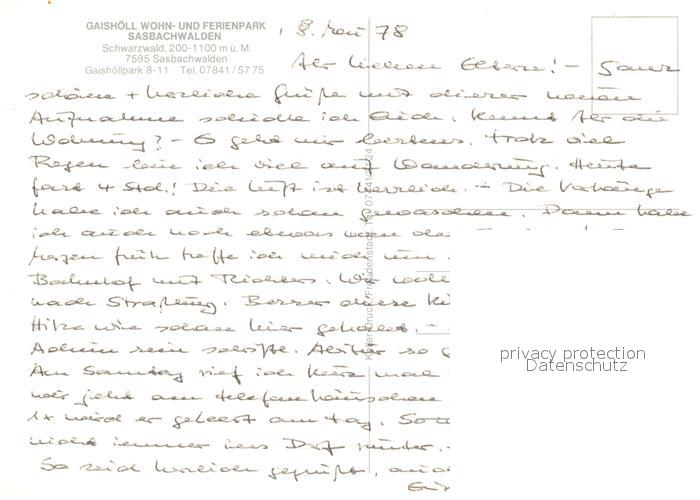 GAISHÖLL WOHN- UND FERIENPARK
SASBACHWALDEN
Schwarzwald, 200-1100 m ü. M.
7595 Sasbachwalden
Gaishöllpark 8-11 · Tel. 07841/5775
8. Mai 78
Ihr lieben Eltern! – Ganz
schöne + herzliche Grüße mit dieser neuen
Aufnahme schicke ich Euch. Kennt Ihr die
Wohnung? – Es geht mir bestens. Trotz viel
Regen bin ich viel auf Wanderung. Heute
fast 4 Std.! Die Luft ist herrlich. – Die Vorhänge
habe ich auch schon gewaschen. Dann habe
ich auch noch etwas von
früh treffe ich mich
Bahnhof mit Richters. Wir
nach Straßburg. Besser diese
Hitze wie schon hier gehabt. –
sein sollte. so
Am Samstag rief ich kurz mal
wir jetzt am Telefonhäuschen
1x wird er geleert am Tag. So
nicht immer ins Dorf runter. –
So seid herzlich gegrüßt,
privacy protection
Datenschutz